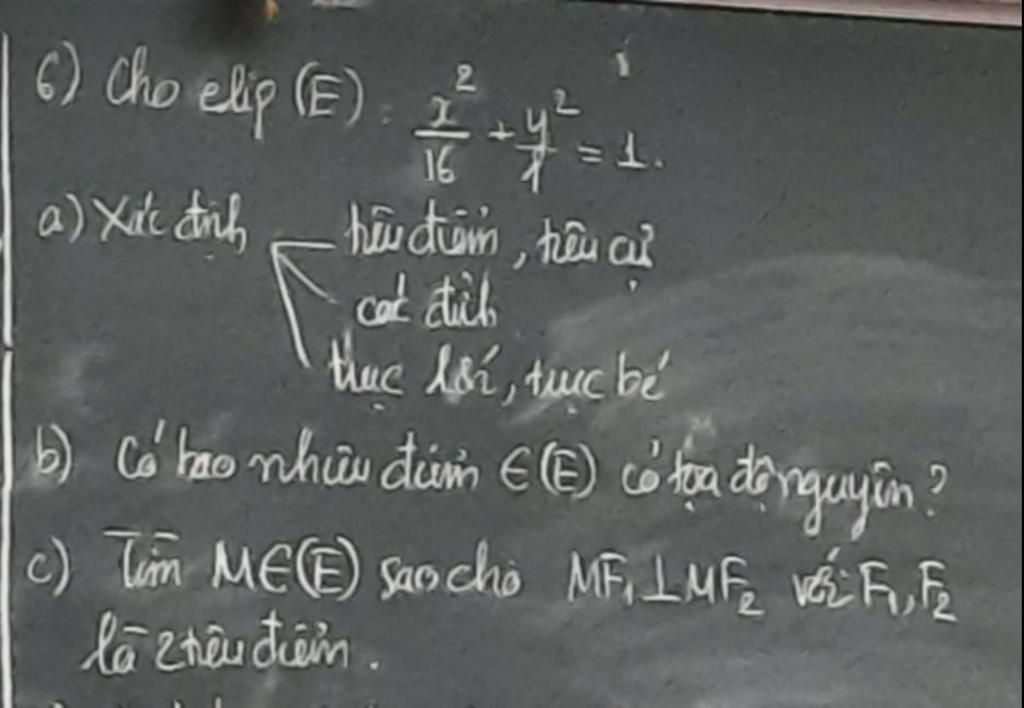 6) Cho elip (E): x²/16 + y²/1 = 1.
a) Xác định tiêu điểm, tiêu cự
các đỉnh
trục lớn, trục bé
b) Có bao nhiêu điểm ∈ (E) có tọa độ nguyên?
c) Tìm M ∈ (E) sao cho MF₁ ⊥ MF₂ với F₁, F₂
là 2 tiêu điểm.